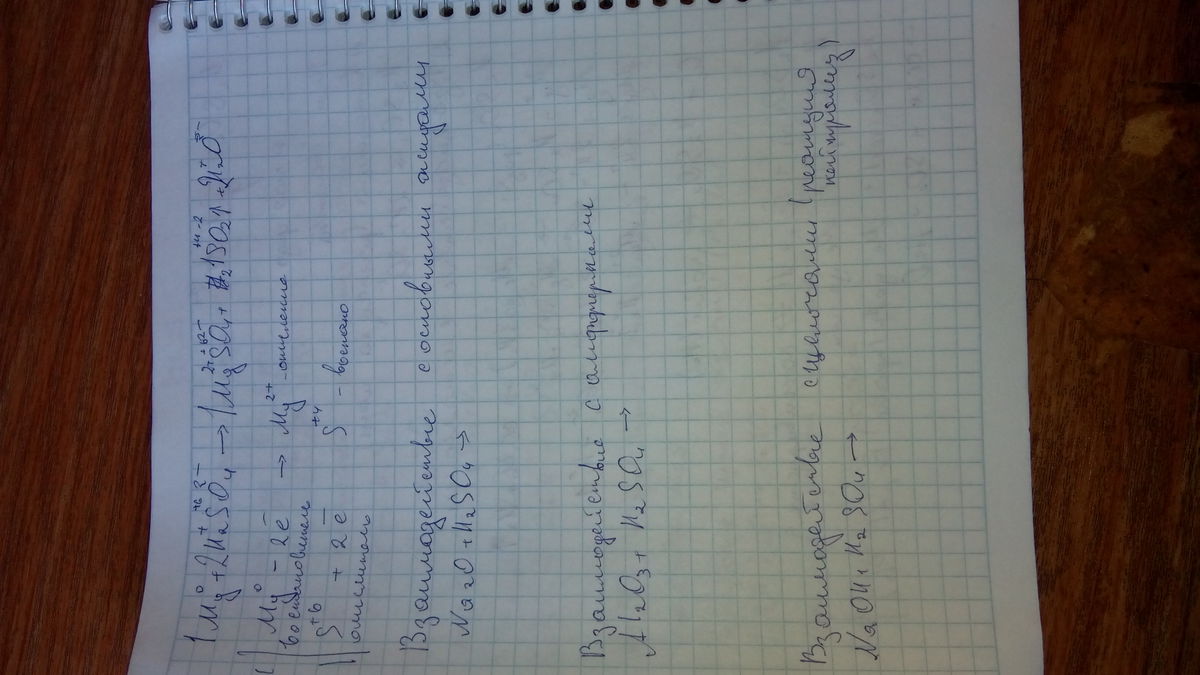 1Mg⁰ + 2H₂⁺S⁺⁶O₄²⁻ → 1Mg²⁺S⁺⁶O₄²⁻ + 1S⁺⁴O₂⁻²↑ + 2H₂⁺O²⁻
1 | Mg⁰ - 2e⁻ → Mg²⁺ - окисление
восстановитель
1 | S⁺⁶ + 2e⁻ S⁺⁴ -
окислитель
Взаимодействие с основными оксидами
Na₂O + H₂SO₄ →
Взаимодействие с амфотерными
Al₂O₃ + H₂SO₄ →
Взаимодействие с щелочами (реакция
нейтрализ)
NaOH + H₂SO₄ →